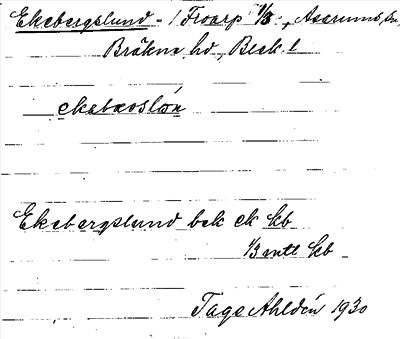 Ekebergslund - / Froarp 1/3:, Asarums sn,
Bräkne hd, Blek. l
ekabærslón
Ekebergslund bek ek kb
1/3 mtl kb
Tage Ahldén 1930